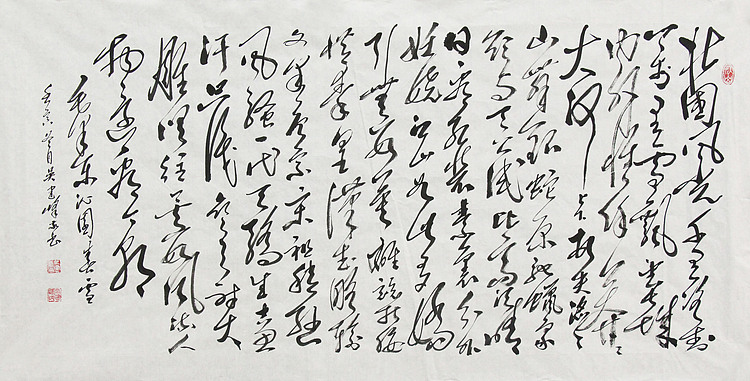 北国风光千里冰封
万里雪飘望长城
内外惟余莽莽
大河上下顿失滔滔
山舞银蛇原驰蜡象
欲与天公试比高须晴
日看红装素裹分外
妖娆江山如此多娇
引无数英雄竞折腰
惜秦皇汉武略输
文采唐宗宋祖稍逊
风骚一代天骄成吉思
汗只识弯弓射大
雕俱往矣数风流人
物还看今朝
毛泽东沁园春雪